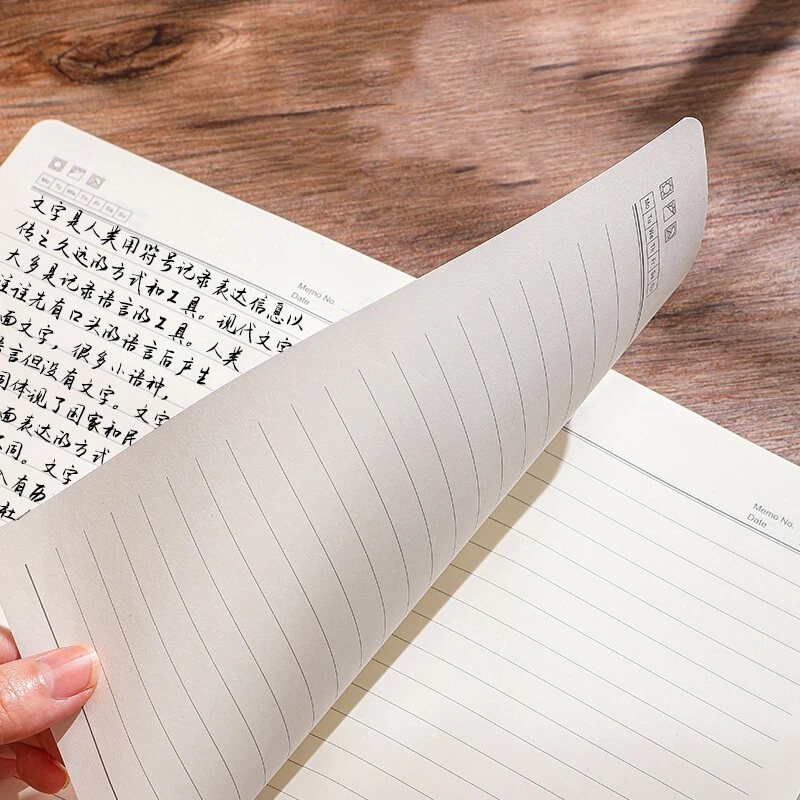 Mo Tu We Th Fr Sa Su
Memo No.
Date
文字是人类用符号记录表达信息以
传之久远的方式和工具。现代文字
大多是记录语言的工具。人类
往往先有口头的语言后产生
面文字，很多小语种，
语言但没有文字。文字
同体现了国家和民
面表达的方式
不同。文字
人有历
社
Mo Tu We Th Fr Sa Su
Memo No.
Date